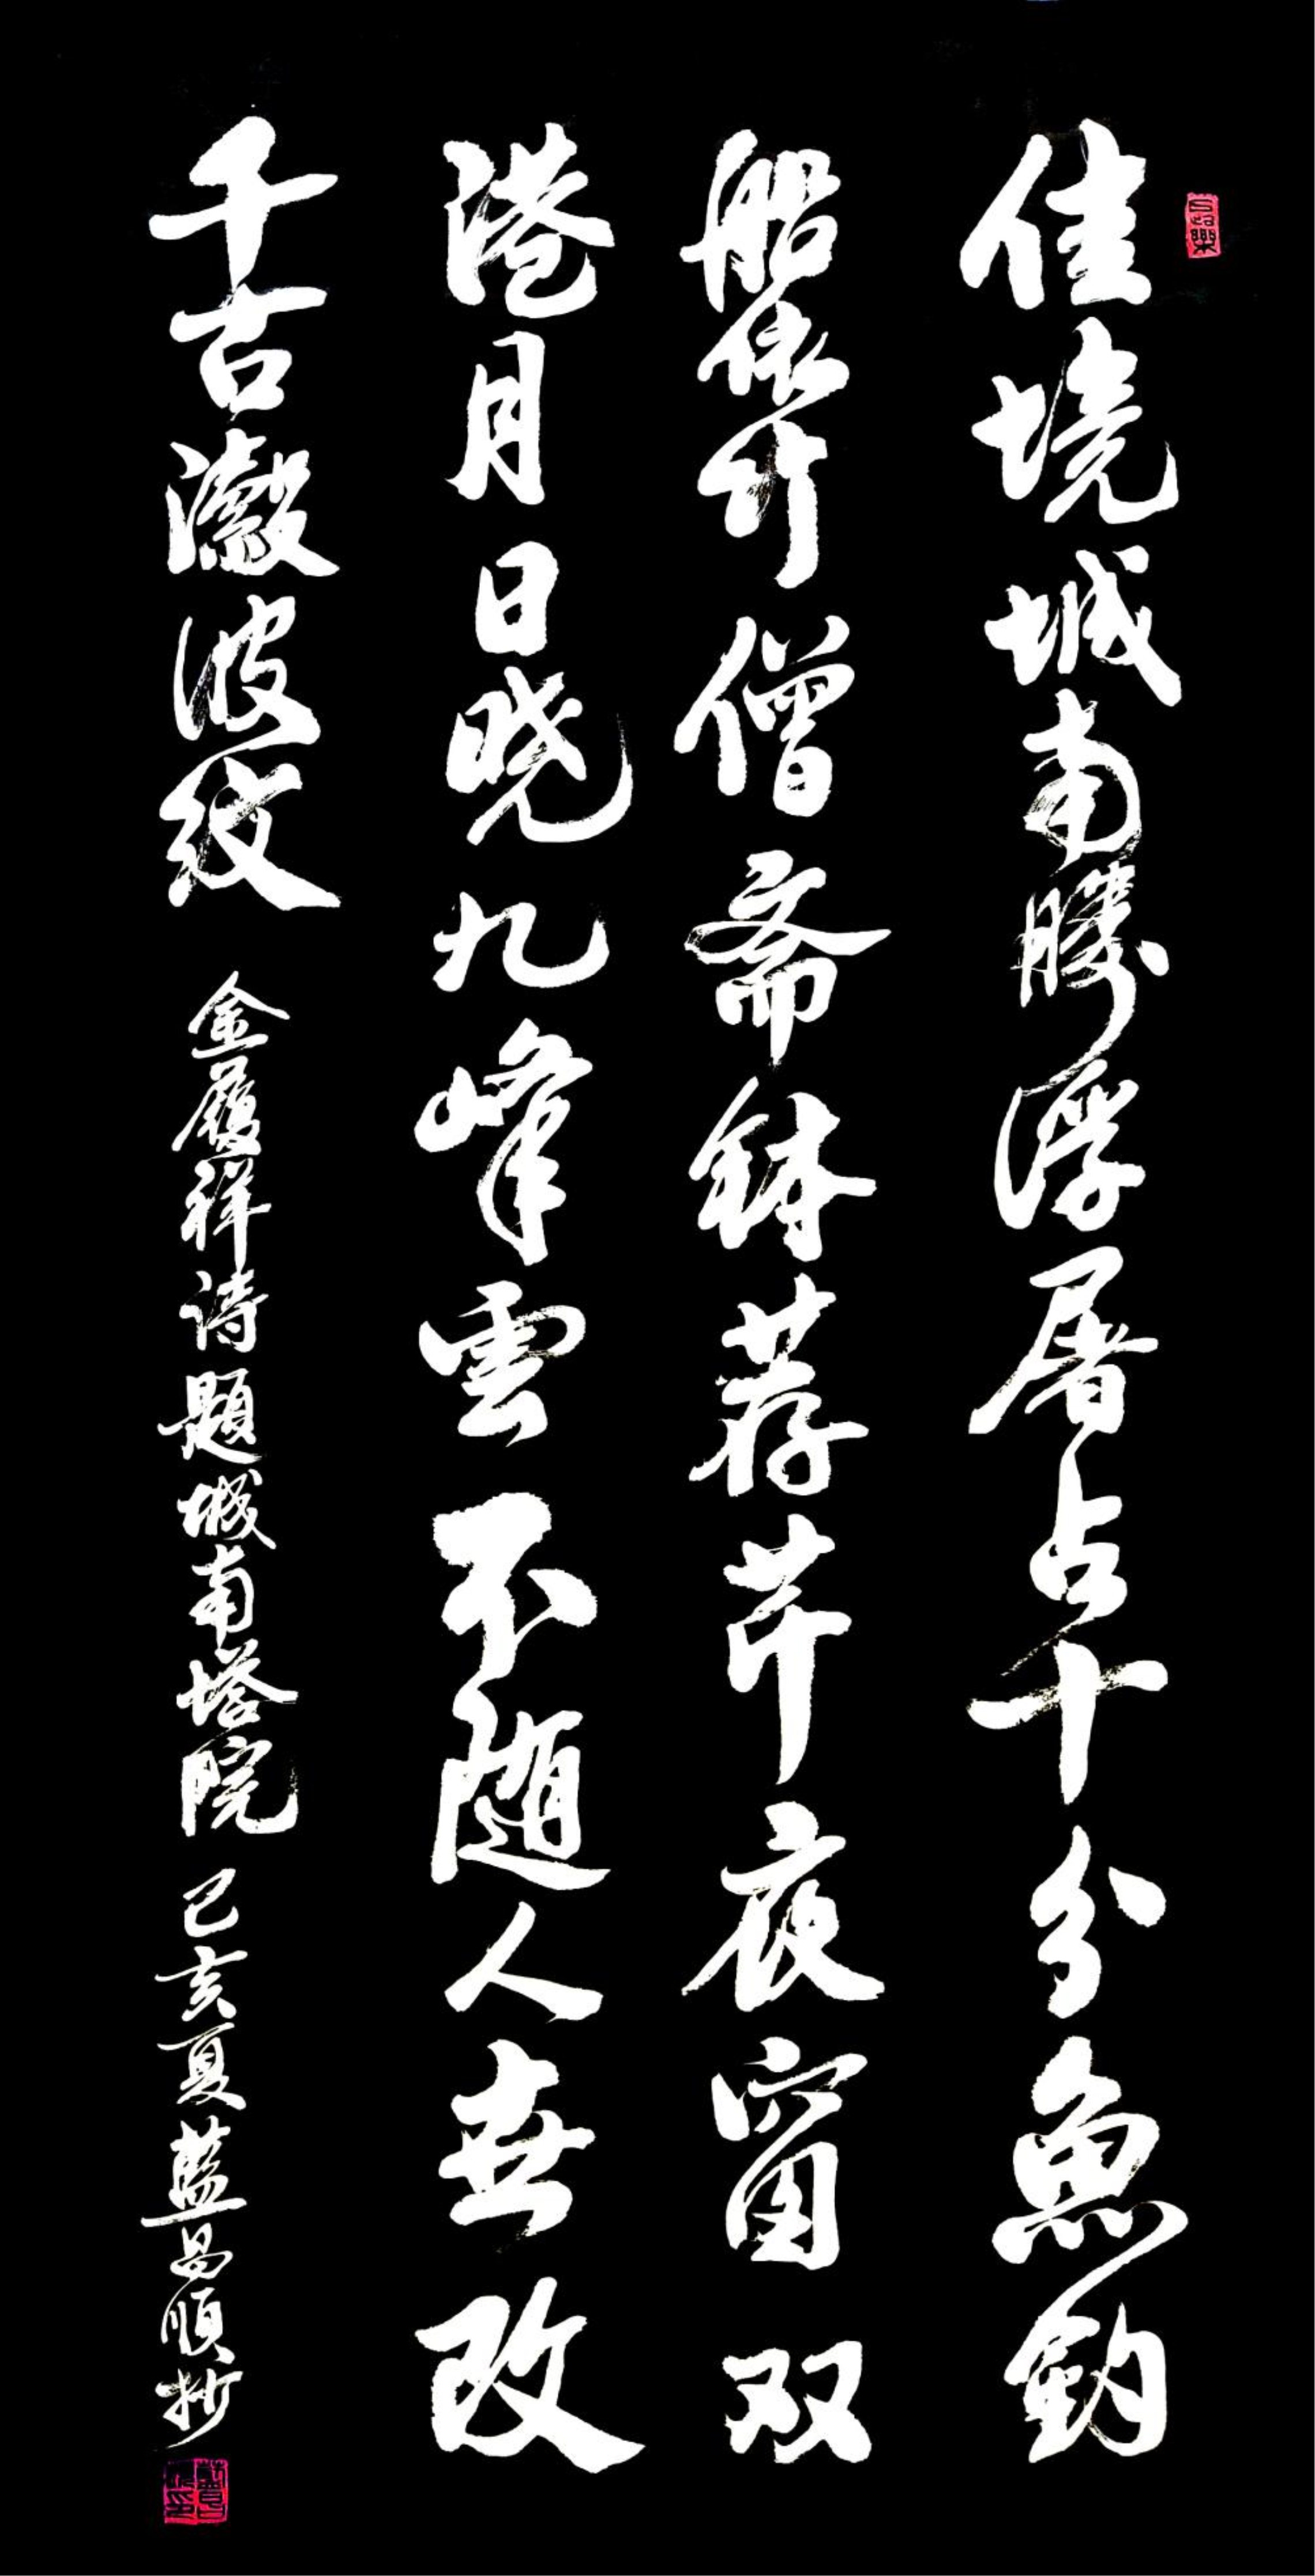 佳境城南勝浮屠占十分魚釣
船依竹僧斋鉢荐芹夜窗双
港月日晓九峰雲不随人世改
千古瀫波纹 金履祥诗題城南塔院 己亥夏藍昌順抄